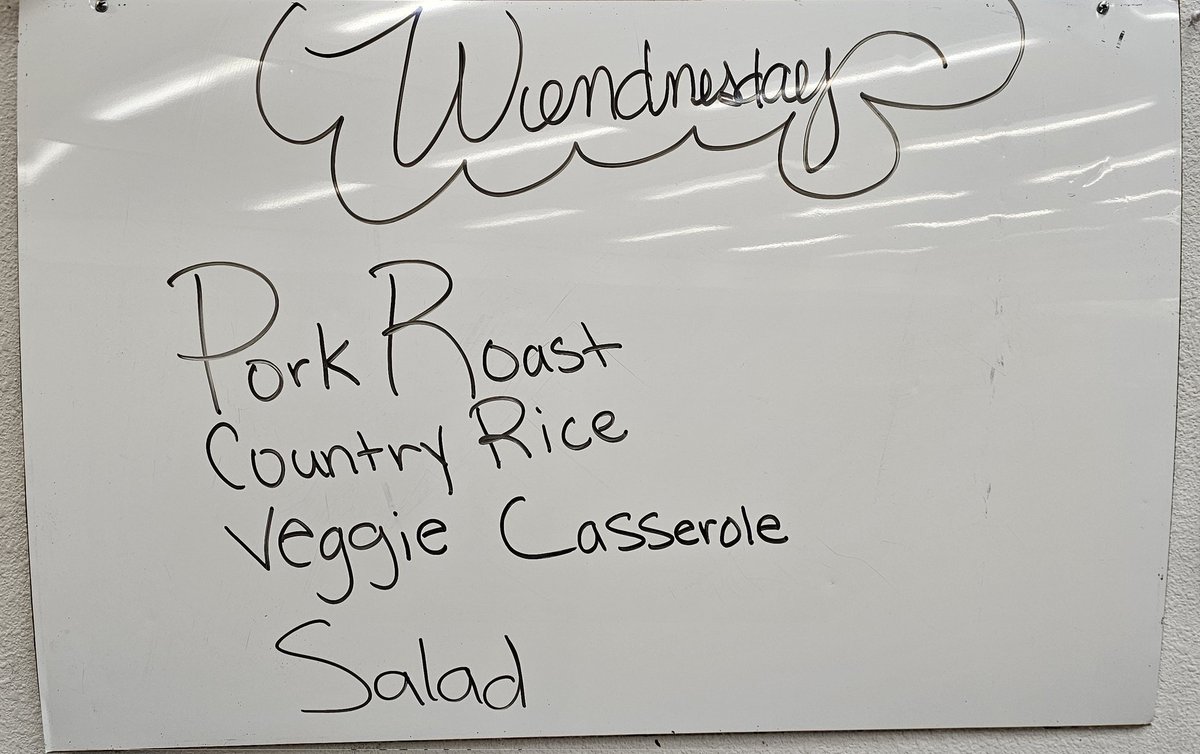 Wendnesday
Pork Roast
Country Rice
Veggie Casserole
Salad